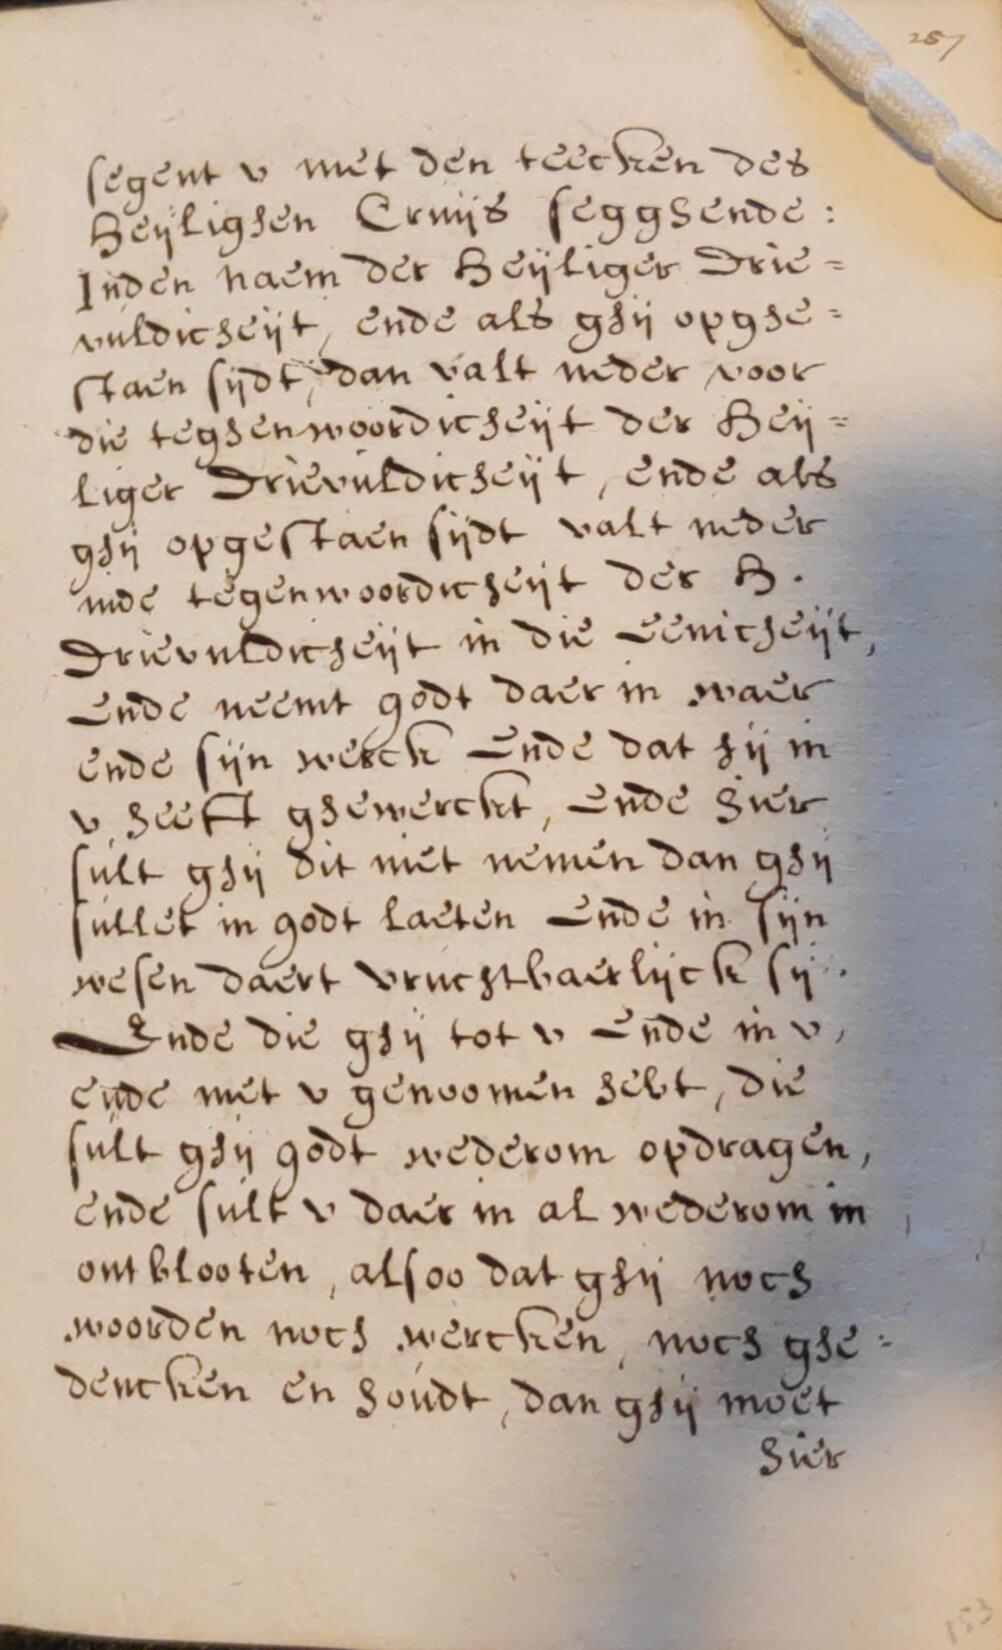 257
segent v met den teecken des
Heÿlighen Cruÿs segghende:
Inden naem der Heÿliger Drie=
vuldicheÿt, ende als ghÿ opghe=
staen sÿdt, dan valt neder voor
die teghenwoordicheÿt der Heÿ=
liger Drievuldicheÿt, ende als
ghÿ opgestaen sÿdt valt neder
inde tegenwoordicheÿt der H.
Drievuldicheÿt in die Eenicheÿt,
Ende neemt godt daer in waer
ende sÿn werck Ende dat hÿ in
v heeft ghewerckt, Ende hier
sult ghÿ dit niet nemen dan ghÿ
sullet in godt laeten Ende in sÿn
wesen daert vruchtbaerlÿck sÿ.
Ende die ghÿ tot v Ende in v,
ende met v genoomen hebt, die
sult ghÿ godt wederom opdragen,
ende sult v daer in al wederom in
ontblooten, alsoo dat ghÿ noch
woorden noch wercken, noch ghe=
dencken en houdt, dan ghÿ moet
hier
153